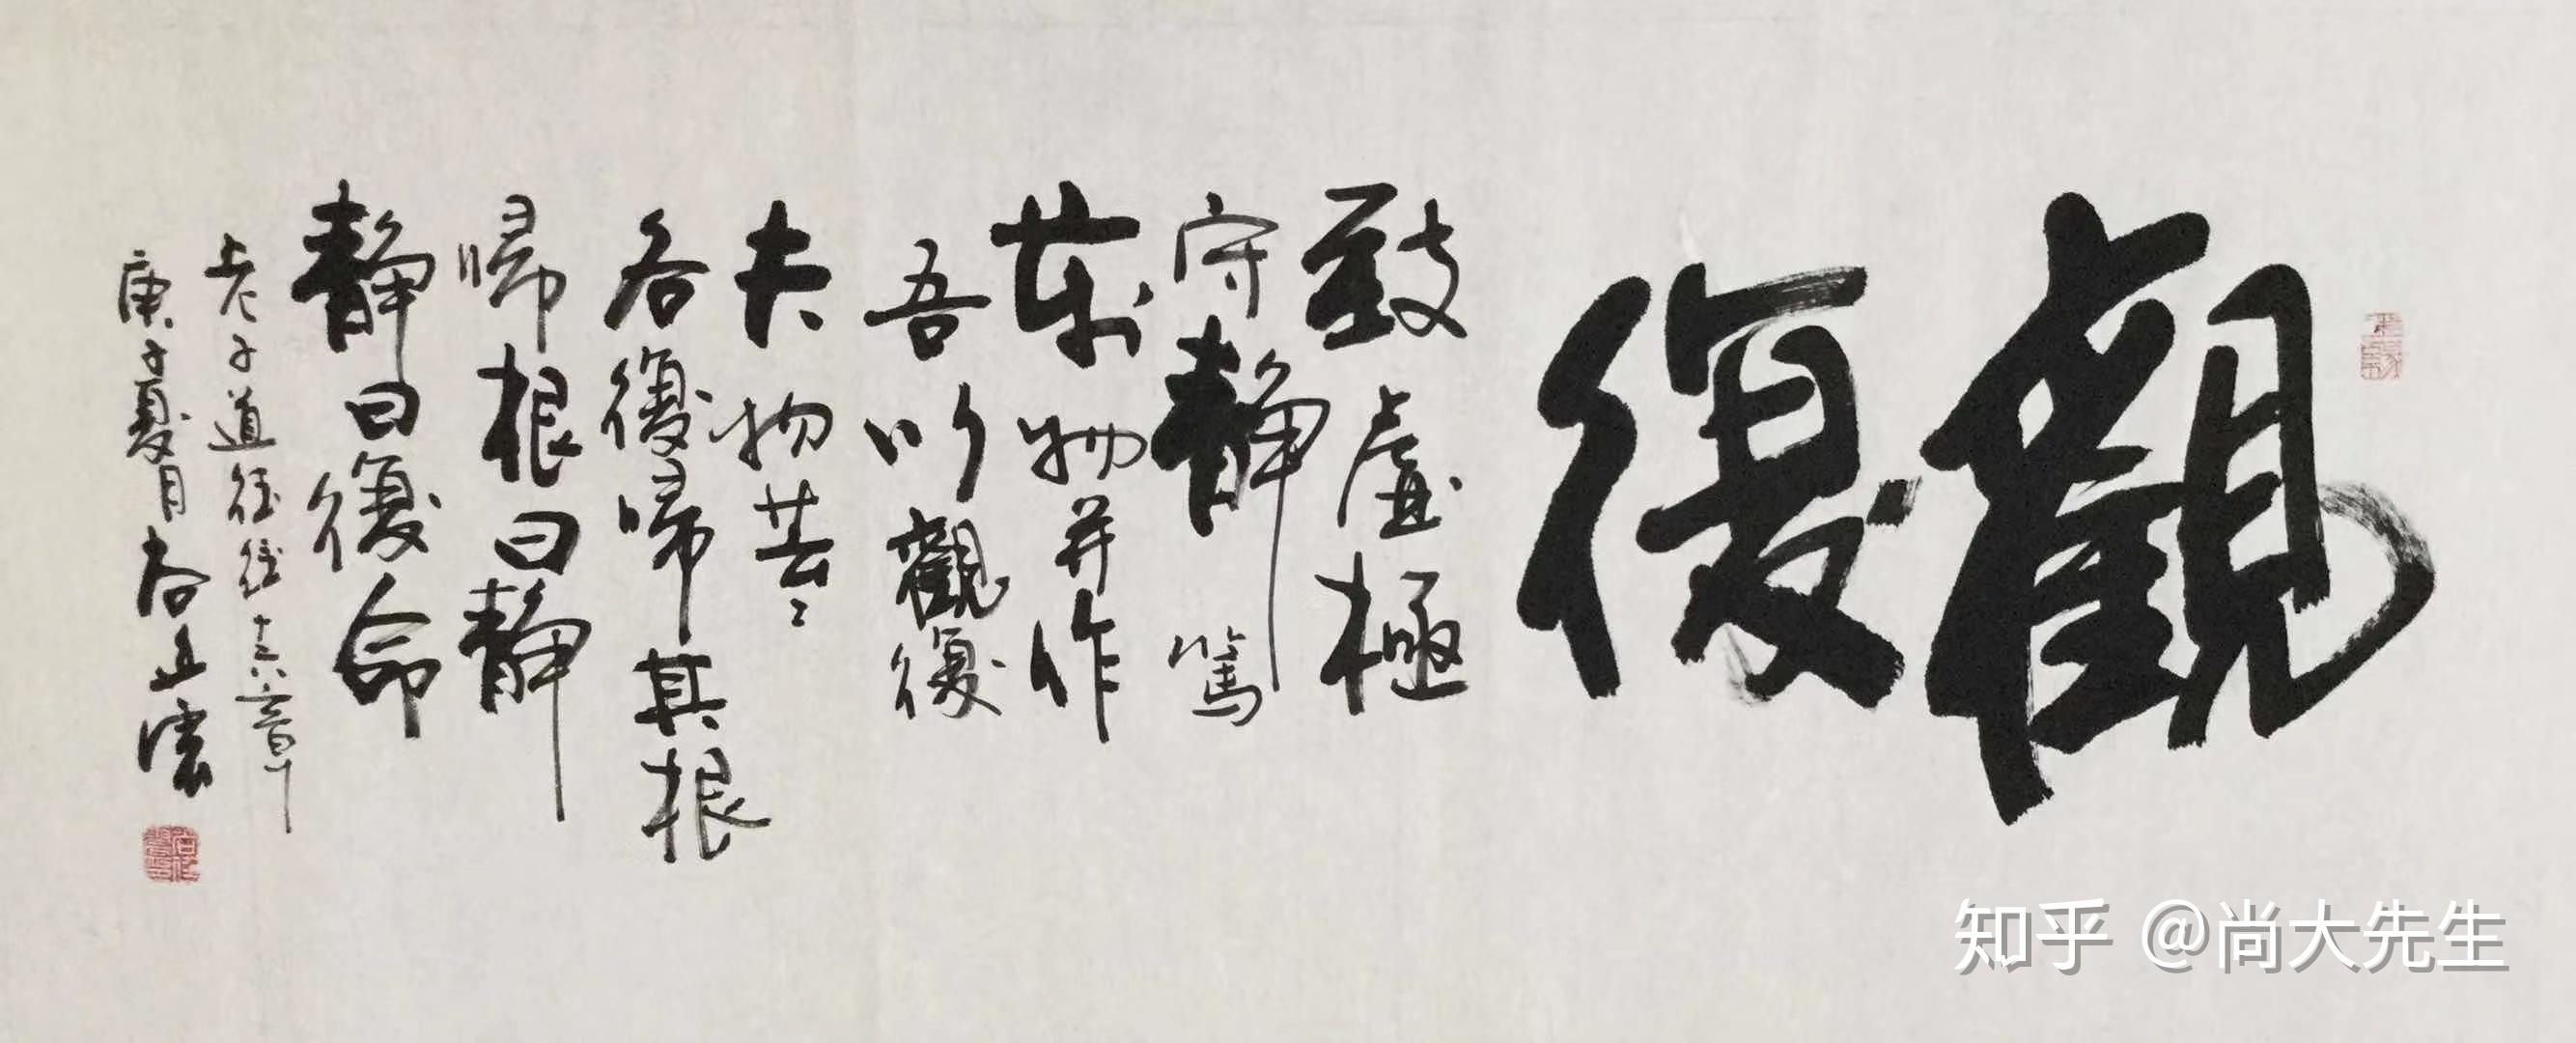 觀復
致虛極
守靜篤
萬物并作
吾以觀復
夫物芸々
各復歸其根
歸根曰靜
靜曰復命
老子道德經十六章
庚子夏月
知乎 @尚大先生